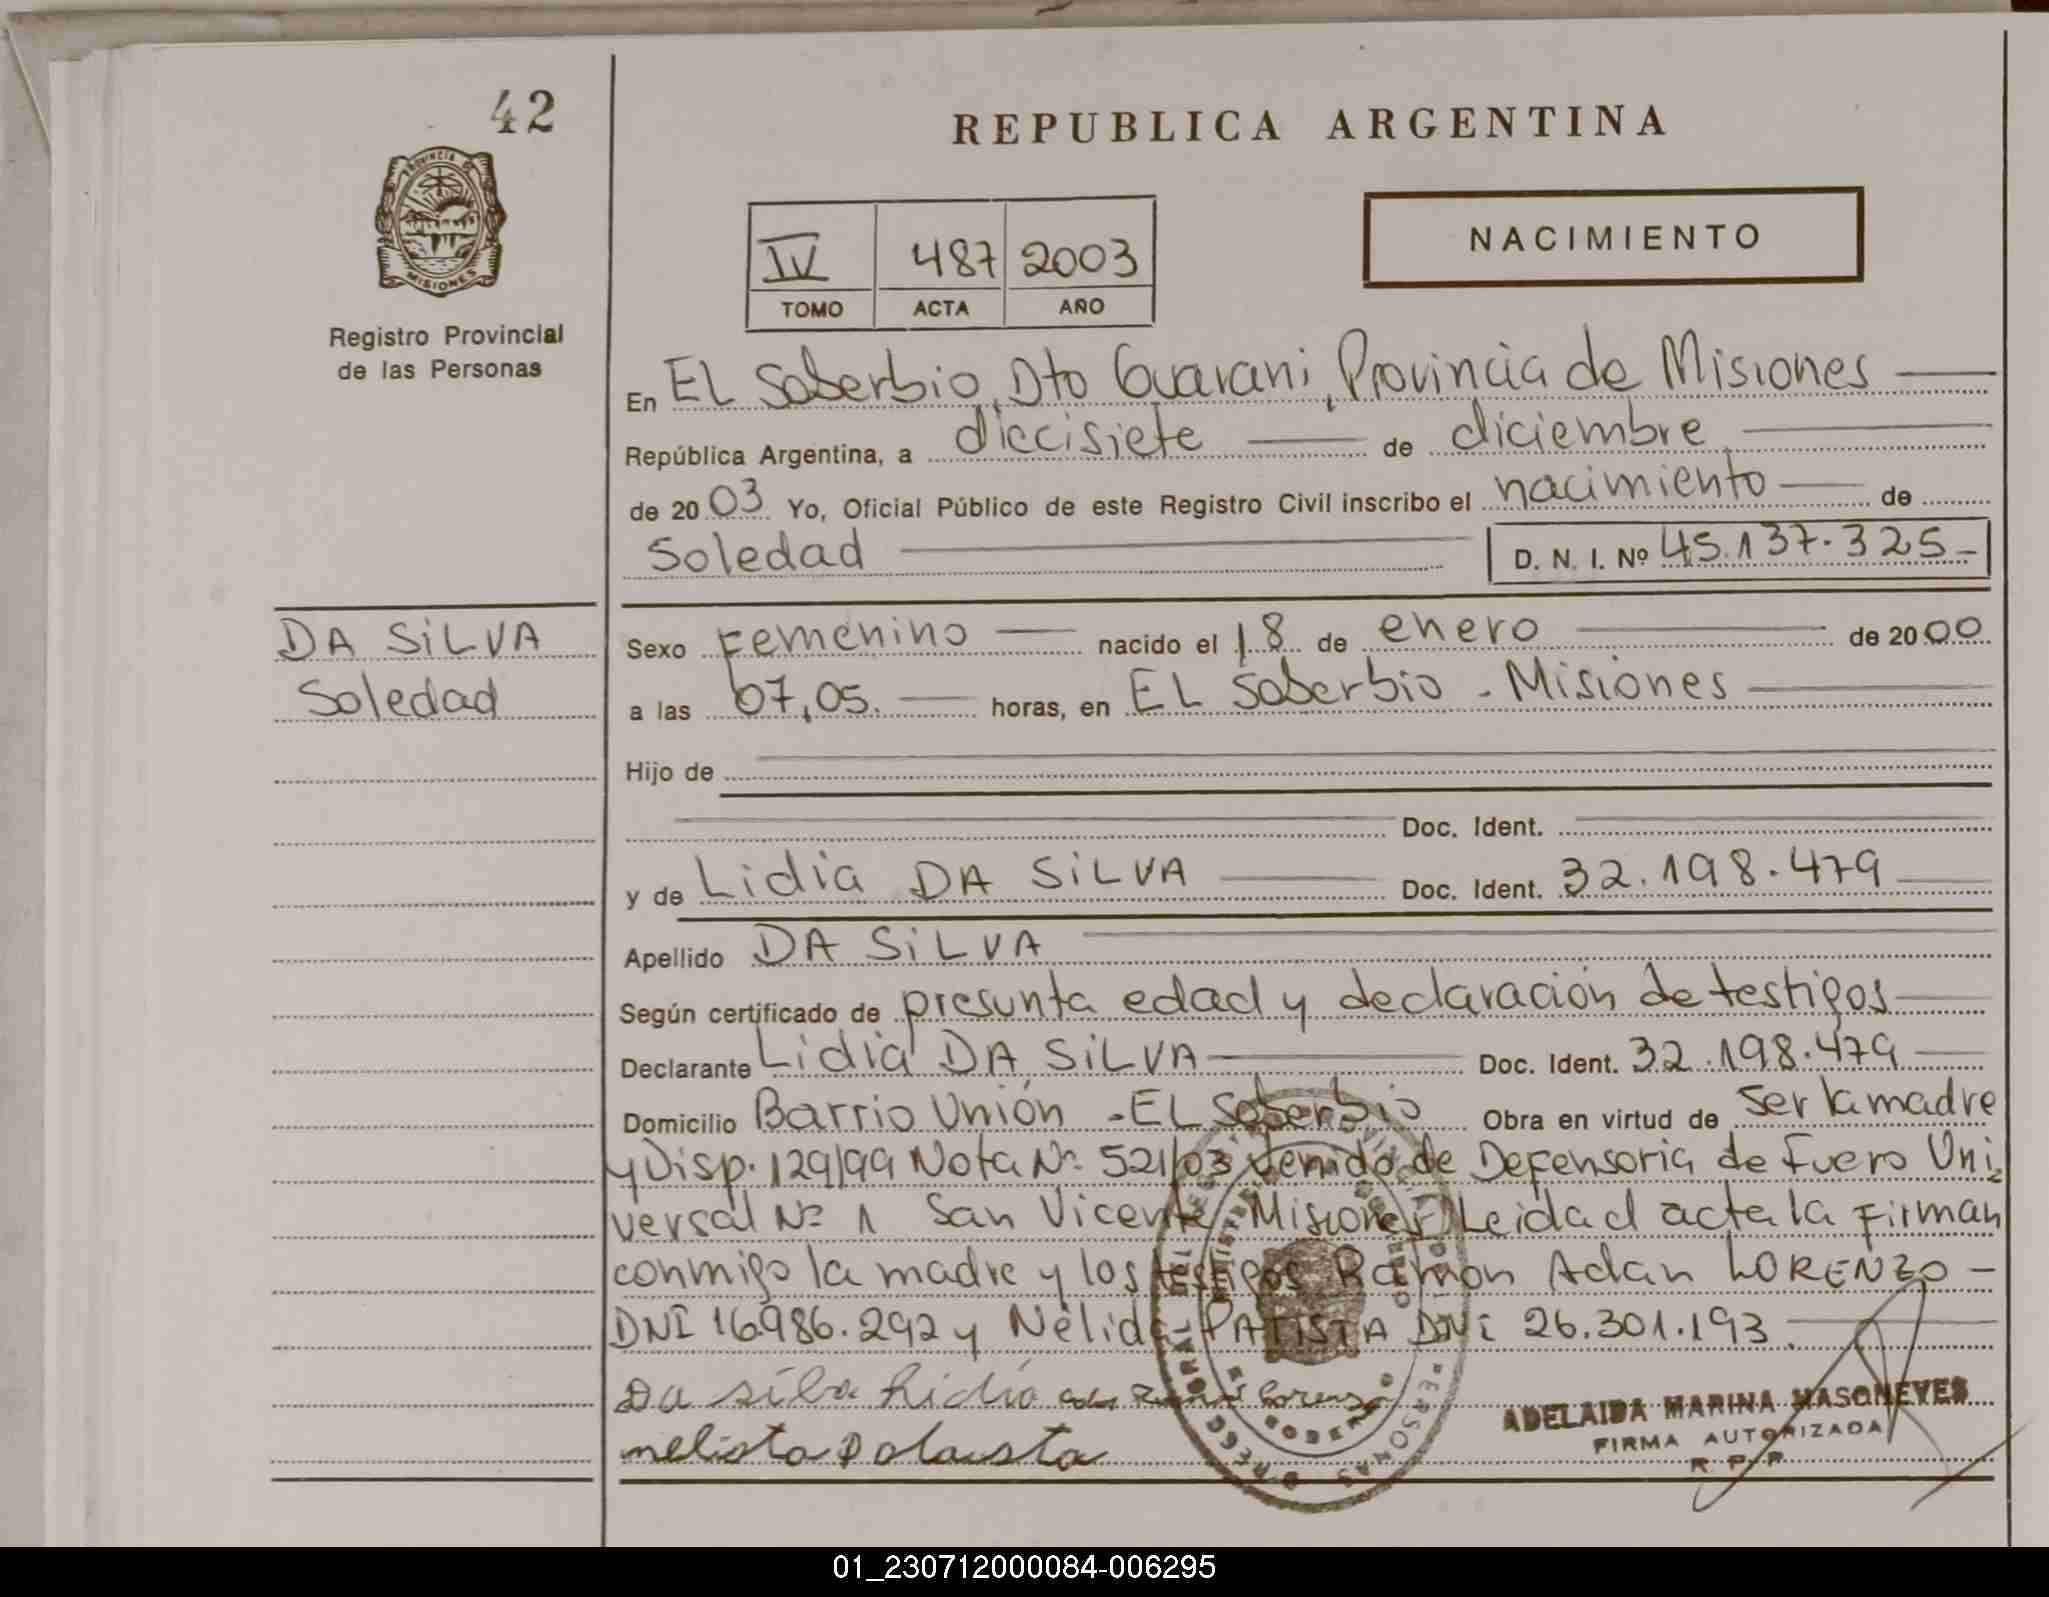 42
REPUBLICA ARGENTINA
PROVINCIA DE
MISIONES
NACIMIENTO
IV 487 2003
TOMO ACTA AÑO
Registro Provincial
de las Personas
En EL Soberbio, Dto Guarani, Provincia de Misiones
República Argentina, a diecisiete de diciembre
de 2003 Yo, Oficial Público de este Registro Civil inscribo el nacimiento de
Soledad D. N. I. Nº 45.137.325
DA SiLVA
Soledad
Sexo Femenino nacido el 18 de enero de 2000
a las 07,05. horas, en EL Soberbio - Misiones
Hijo de
Doc. Ident.
y de Lidia DA SiLVA Doc. Ident. 32.198.479
Apellido DA SiLVA
Según certificado de presunta edad y declaración de testigos
Declarante Lidia DA SiLVA Doc. Ident. 32.198.479
Domicilio Barrio Unión - EL Soberbio Obra en virtud de ser la madre
y Disp. 129/99 Nota Nº 521/03 venido de Defensoria de Fuero Uni
versal Nº 1 San Vicente Misiones Leida el acta la firman
conmigo la madre y los testigos Ramon Adan LORENZO -
DNI 16.986.292 y Nélida PATISTA DNi 26.301.193.
Da silba Lidia
ADELAIDA MARINA MASONEVES
FIRMA AUTORIZADA
R. P. P.
01_230712000084-006295